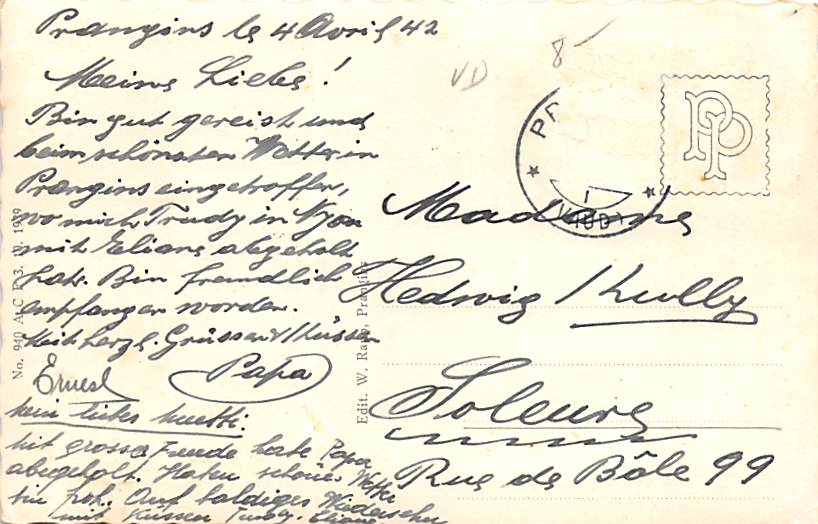 Prangins le 4 Avril 42
Meine Liebe!
Bin gut gereist und
beim schönsten Wetter in
Prangins eingetroffen,
wo mich Trudy in Nyon
mit Eliane abgeholt
hat. Bin freundlich
empfangen worden.
Mit herzl. Grüssen & Küssen
Ernest Papa
Mein liebes Muetti.
Mit grosser Freude habe Papa
abgeholt. Haben schönes Wetter
bin froh. Auf baldiges Wiedersehn
mit Küssen Trudy. Eliane
No. 940 A. C.
1939
Edit. W. Prangins
VD
8-
PR
(VAUD)
PP
Madame
Hedwig Kully
Soleure
Rue de Bâle 99